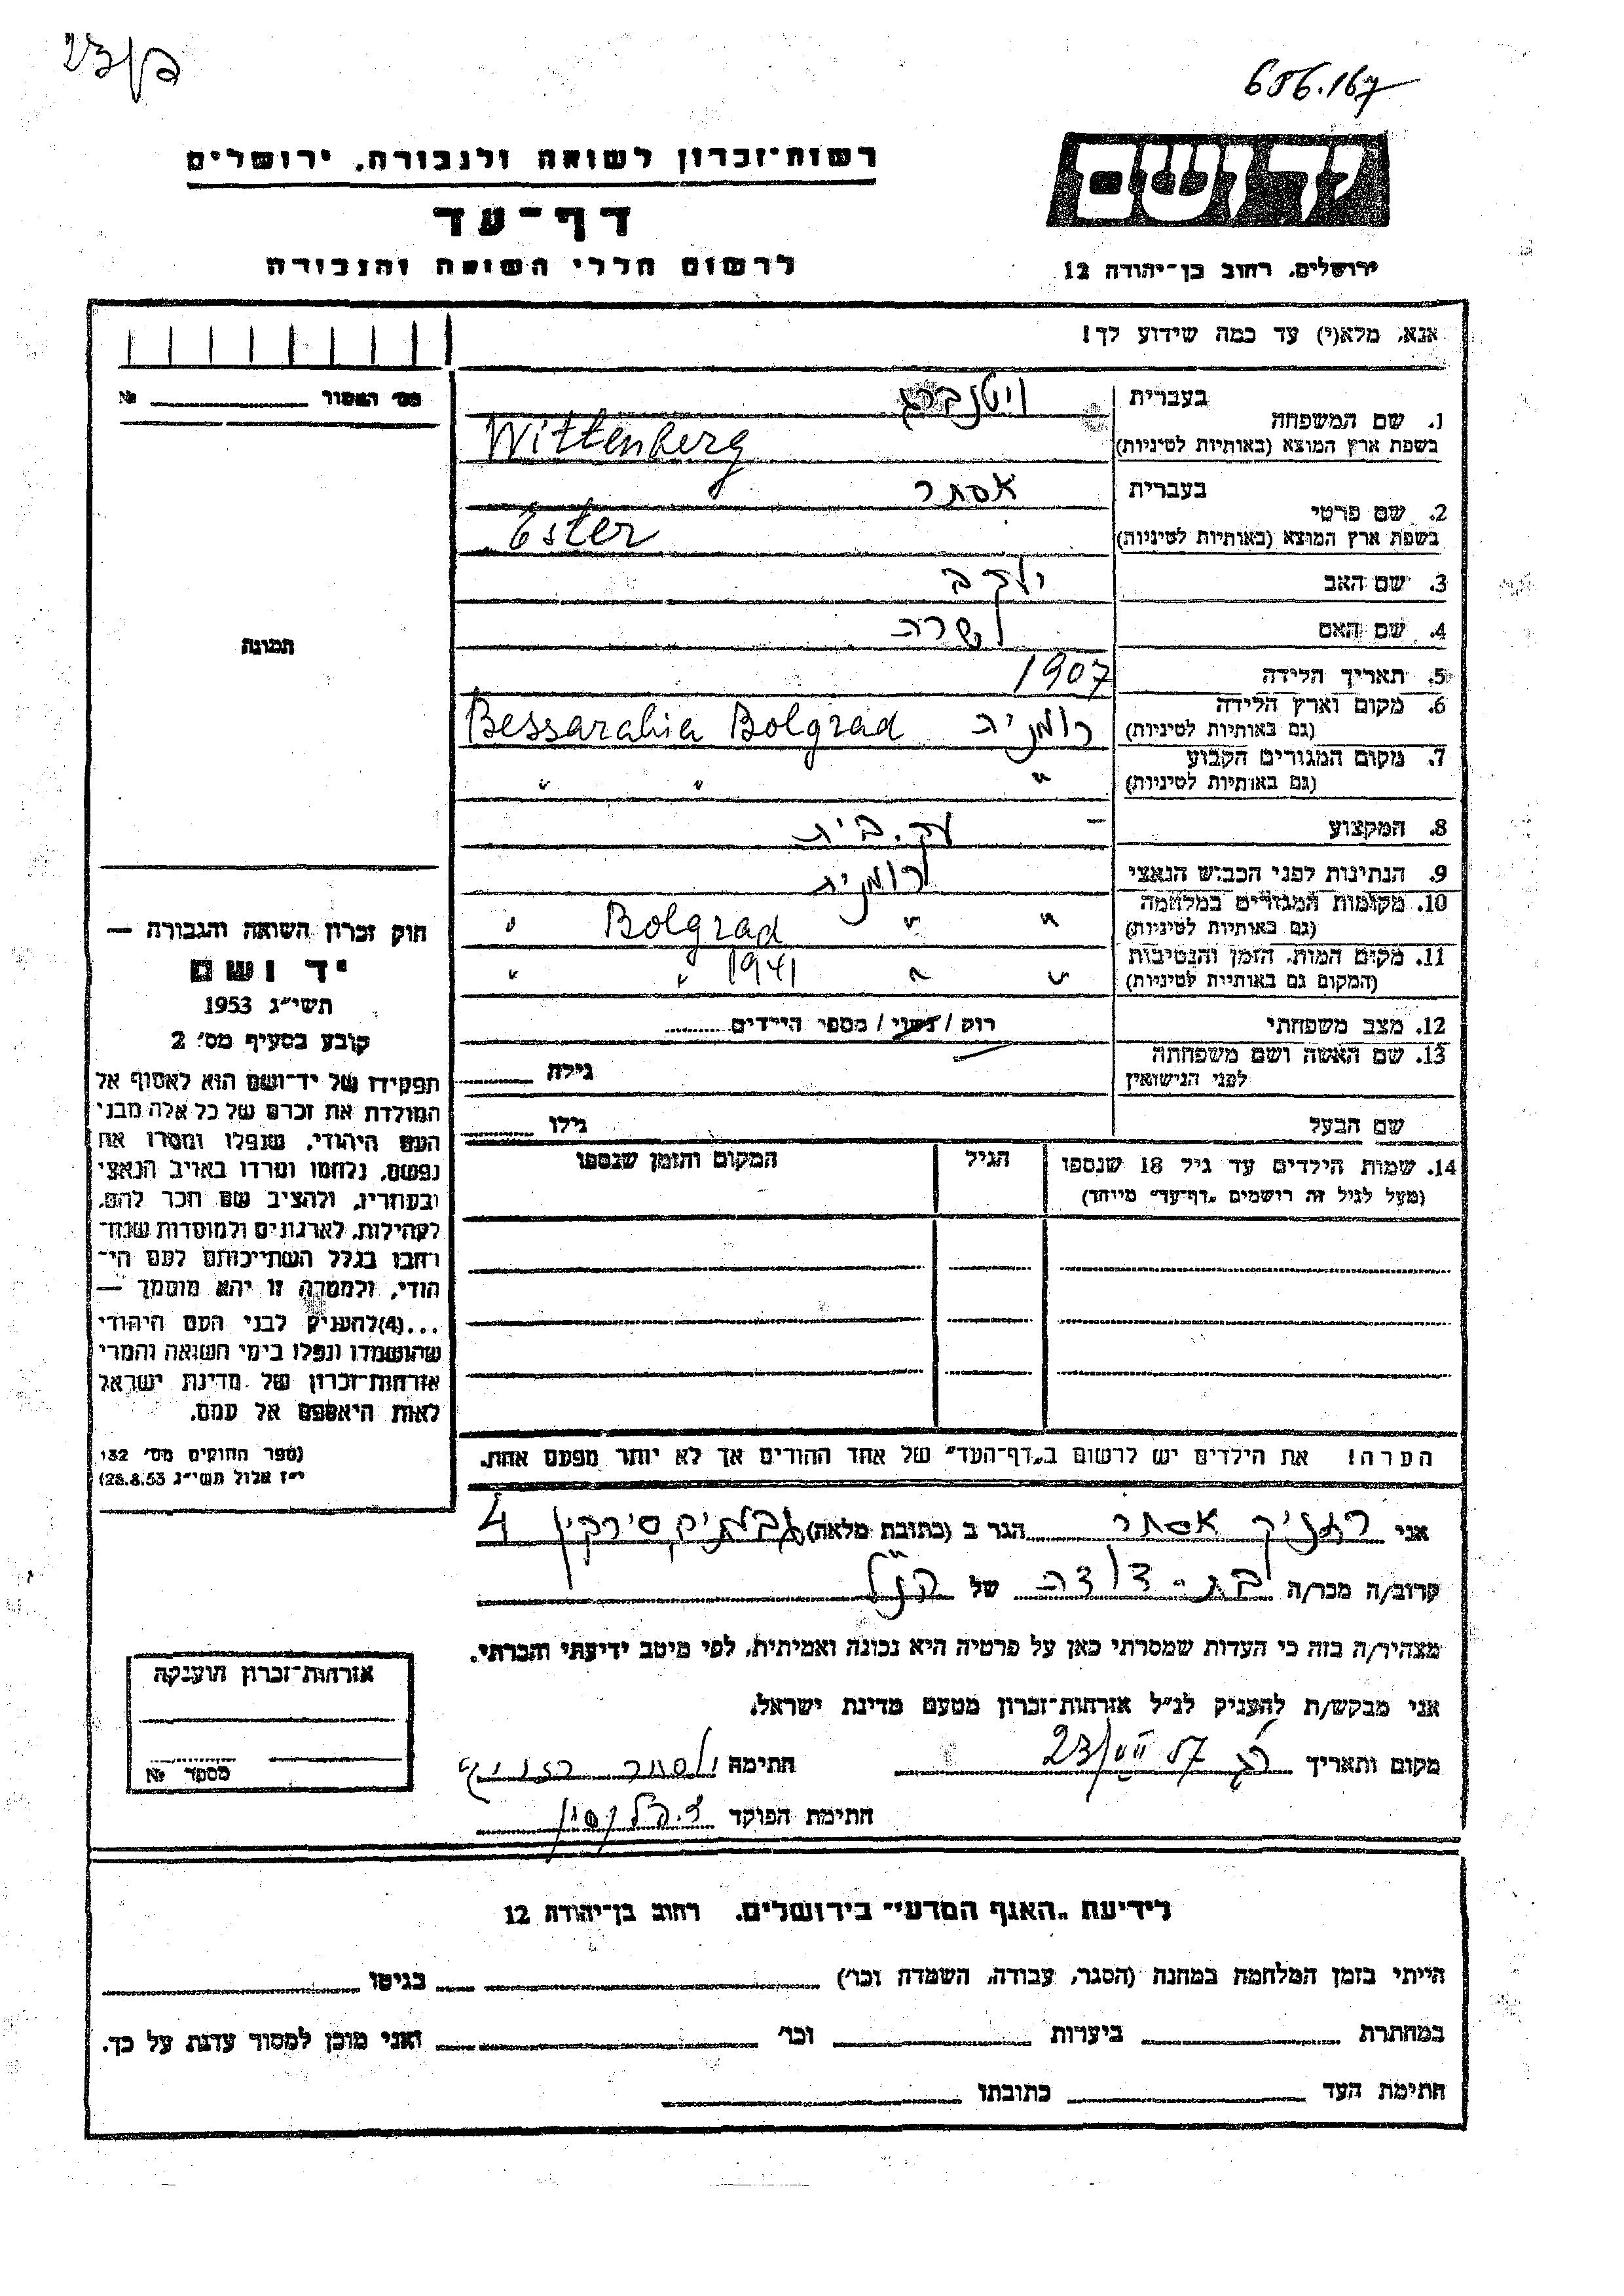 686.167
רשות-זכרון לשואה ולגבורה, ירושלים
יד ושם
דף-עד
לרשום חללי השואה והגבורה
ירושלים, רחוב בן-יהודה 12
אנא, מלא(י) עד כמה שידוע לך!
מס' האסור № 
בעברית ויטנברג
1. שם המשפחה
בשפת ארץ המוצא (באותיות לטיניות) Wittenberg
בעברית אסתר
2. שם פרטי
בשפת ארץ המוצא (באותיות לטיניות) Ester
3. שם האב יעקב
4. שם האם שרה
תמונה
5. תאריך הלידה 1907
6. מקום וארץ הלידה
(גם באותיות לטיניות) רומניה Bessarabia Bolgrad
7. מקום המגורים הקבוע
(גם באותיות לטיניות) " " "
8. המקצוע – עק. בית
9. הנתינות לפני הכבוש הנאצי רומנית
10. מקומות המגורים במלחמה
(גם באותיות לטיניות) " " Bolgrad "
11. מקום המות, הזמן והנסיבות
(המקום גם באותיות לטיניות) " " 1941 " "
12. מצב משפחתי רווק / נשוי / מספר הילדים
13. שם האשה ושם משפחתה
לפני הנישואין גילה
שם הבעל גילו
14. שמות הילדים עד גיל 18 שנספו הגיל המקום והזמן שנספו
(מעל לגיל זה רושמים "דף-עד" מיוחד)
חוק זכרון השואה והגבורה —
יד ושם
תשי"ג 1953
קובע בסעיף מס' 2
תפקידו של יד-ושם הוא לאסוף אל
המולדת את זכרם של כל אלה מבני
העם היהודי, שנפלו ומסרו את
נפשם, נלחמו ומרדו באויב הנאצי
ובעוזריו, ולהציב שם וזכר להם,
לקהילות, לארגונים ולמוסדות שנח-
רבו בגלל השתייכותם לעם הי-
הודי, ולמטרה זו יהא מוסמך —
...(4)להעניק לבני העם היהודי
שהושמדו ונפלו בימי השואה והמרי
אזרחות-זכרון של מדינת ישראל
לאות היאספם אל עמם.
(ספר החוקים מס' 132
י"ז אלול תשי"ג 28.8.53)
הערה! את הילדים יש לרשום ב"דף-העד" של אחד ההורים אך לא יותר מפעם אחת.
אני רזניק אסתר הגר ב (כתובת מלאה) סירקין 4
קרוב/ה מכר/ה בת-דודה של הנ"ל
מצהיר/ה בזה כי העדות שמסרתי כאן על פרטיה היא נכונה ואמיתית, לפי מיטב ידיעתי והכרתי.
אני מבקש/ת להעניק לנ"ל אזרחות-זכרון מטעם מדינת ישראל.
מקום ותאריך 23/VII 57 חתימה אסתר רזניק
חתימת הפוקד
אזרחות-זכרון הוענקה
מספר №
לידיעת "האגף המדעי" בירושלים, רחוב בן-יהודה 12
הייתי בזמן המלחמה במחנה (הסגר, עבודה, השמדה וכו') בגיטו
במחתרת ביערות וכו' ואני מוכן למסור עדות על כך.
חתימת העד כתובתו